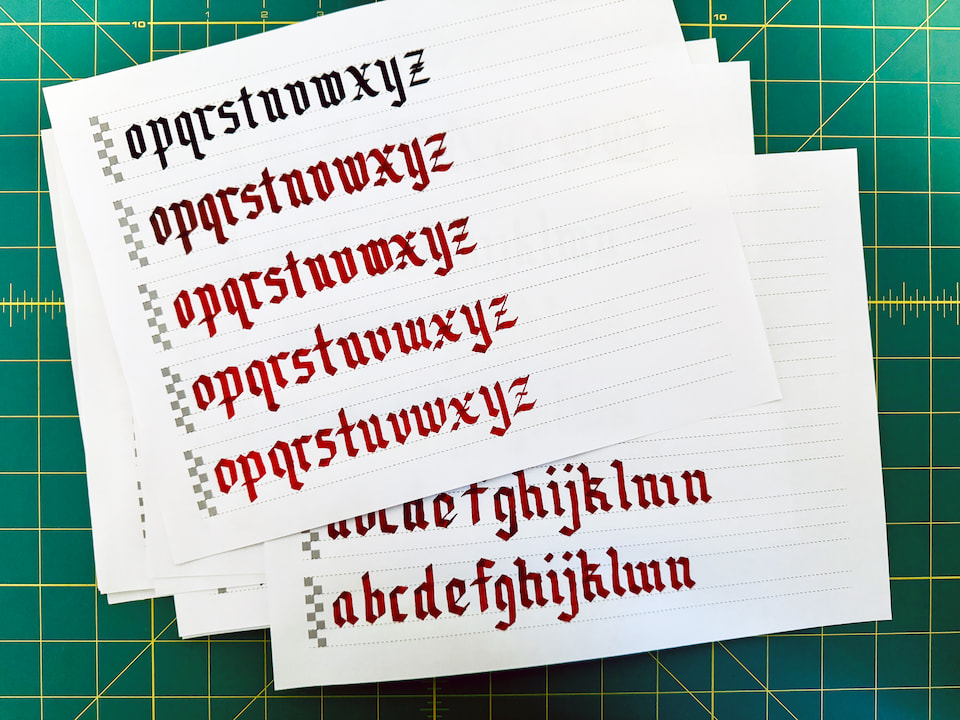 10 1 2 10
opqrstuvwxyz
opqrstuvwxyz
opqrstuvwxyz
opqrstuvwxyz
opqrstuvwxyz
abcdefghijklmn
abcdefghijklmn